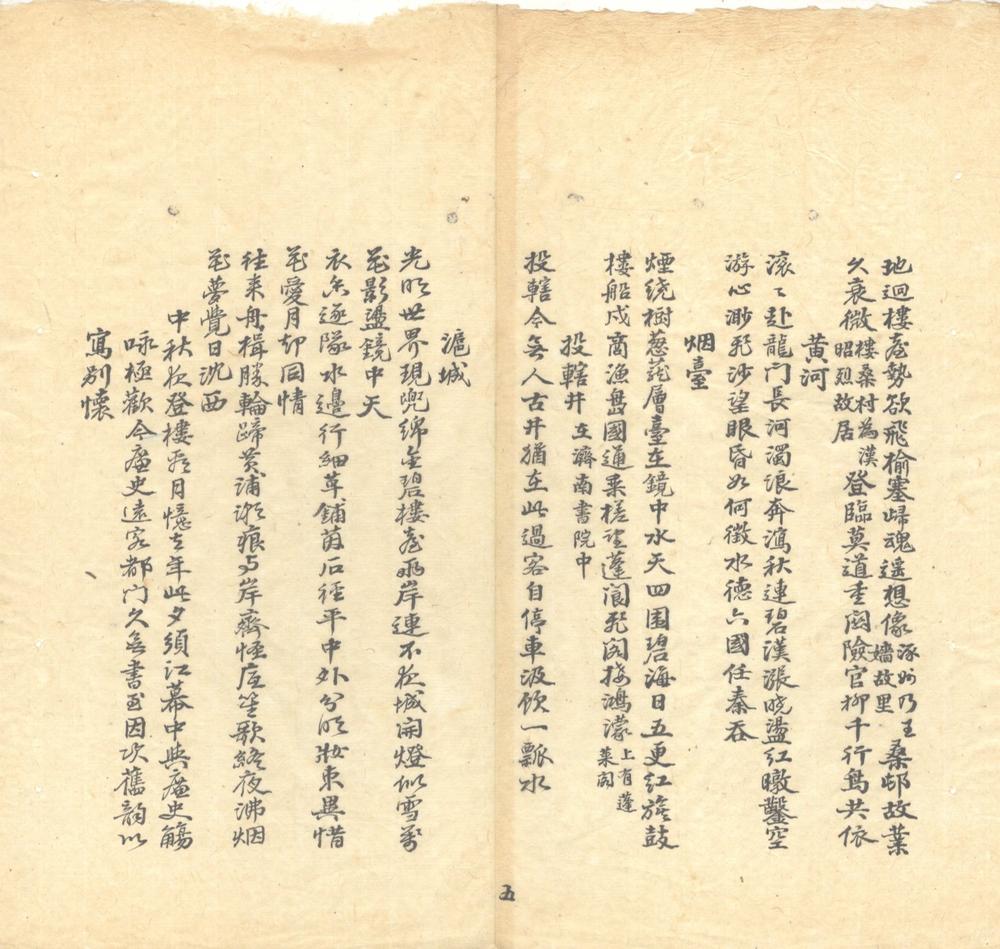 地迥樓臺勢欲飛榆塞歸魂遥想像涿州乃王嬙故里桑邨故業
久衰微樓桑村為漢昭烈故居登臨莫道重關險官柳千行鳥共依
黄河
滚々赴龍門長河濁浪奔瀉秋連碧漢漲晓盪紅暾鑿空
游心渺飛沙望眼昏如何徴水德六國任秦吞
烟臺
煙绕樹葱蘢層臺在鏡中水天四围碧海日五更红旗鼓
樓船戍商漁島國通乘槎望蓬閬飛閣接鴻濛上有蓬萊閣
投轄井在濟南書院中
投轄今無人古井猶在此過客自停車汲飲一瓢水
五
滬城
光明世界現兜綿金碧樓臺兩岸連不夜城開燈似雪萬
花影盪鏡中天
衣香逐隊水邊行細草铺茵石徑平中外分明妝束異惜
花愛月却同情
往来舟楫勝輪蹄黄浦潮痕与岸齊恠底笙歌終夜沸烟
花夢覺日沈西
中秋夜登樓看月憶去年此夕須江幕中與廬史觴
咏極歡今廬史遠客都門久無書至因次舊韵以
寫别懷